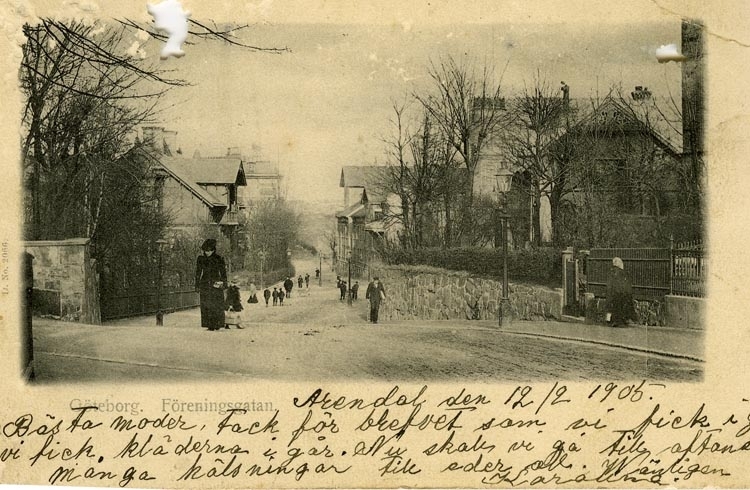 L. No. 2066.
Göteborg. Föreningsgatan.
Arendal den 12/2 1905.
Bästa moder, tack för brefvet som vi fick i
vi fick kläderna i går. Nu skall vi gå till aftons
många hälsningar till eder all. Vänligen
Karolina.